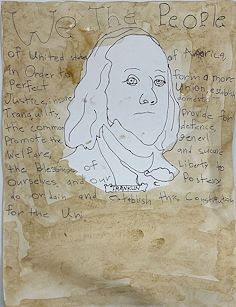 We The People
of United states of America,
in Order to form a more
Perfect Union, establish
Justice, insure domestic
Tranquilty, Provide for
the common defence,
Promote the generl
Welfare, and sucure
the Blessings of Liberty to
Ourselves, and our Postery
do ordain and estblish this Constitution
for the Uni
FRANKLIN